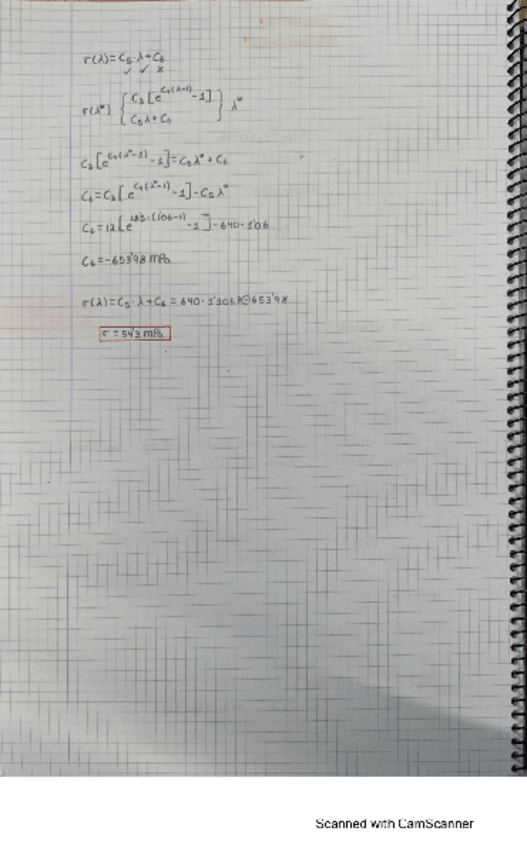 σ(λ)=C₅·λ+C₆
✓ ✓ x
σ(λ*) { C₃[e^C₄(λ-1) -1]
C₅λ+C₆ } λ*
C₃[e^C₄(λ*-1) -1]=C₅λ*+C₆
C₆=C₃[e^C₄(λ*-1) -1]-C₅λ*
-1]-640·1'06
C₆=-653'98 MPa
σ(λ)=C₅·λ+C₆ = 640·1'106 653'98
σ=54'3 MPa
Scanned with CamScanner